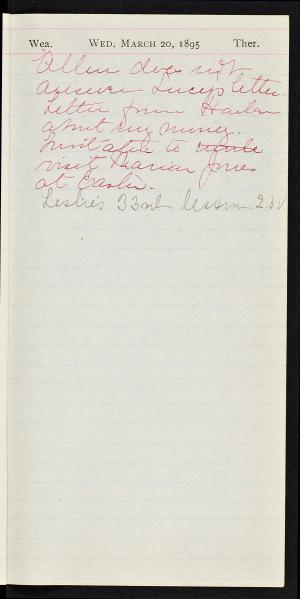 Wea. WED. MARCH 20, 1895 Ther.
Allen does not
answer Lucy's letter.
Letter from Harlan
about my money.
Invitation to
visit Marion Jones
at Easter.
Leslie's 33rd lesson 2.30